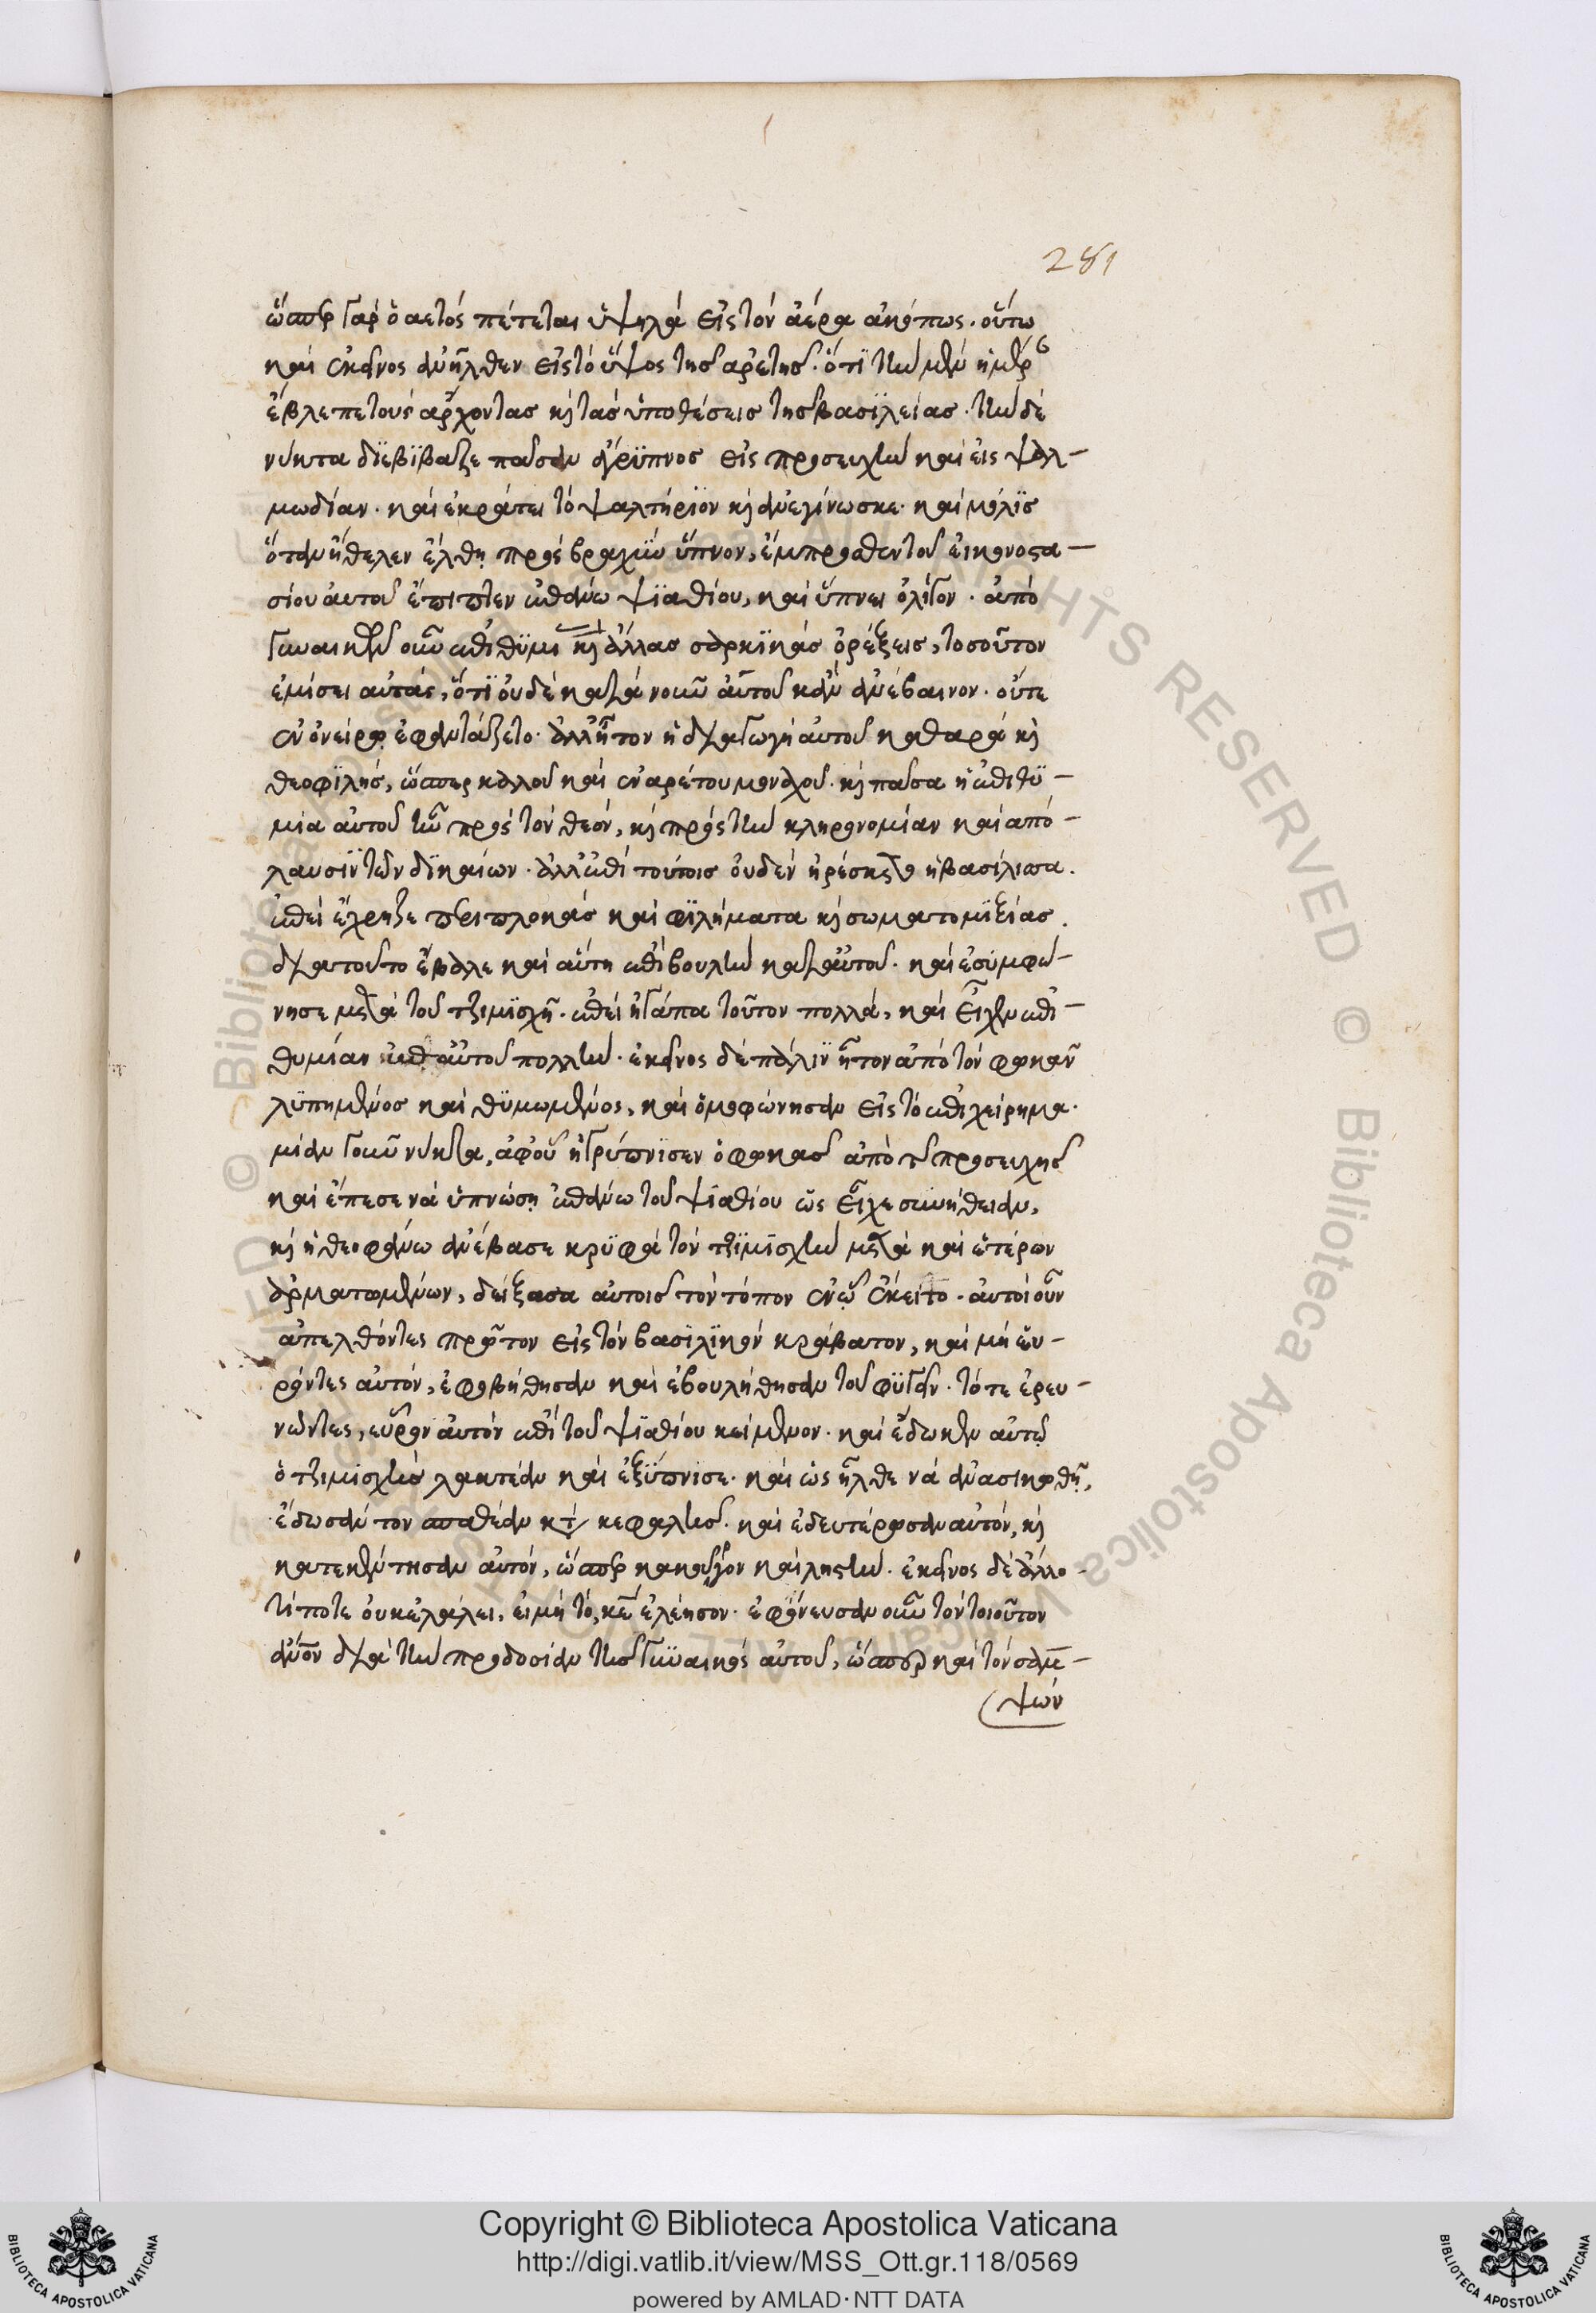 281
ὥσπερ γὰρ ὁ αετός πέτεται ὑψηλά εἰς τὸν ἀέρα ακόπως. οὕτω
καὶ ἐκεῖνος ἀνῆλθεν εἰς τὸ ὕψος τῆς αρετῆς. ὅτϊ τὴν μὲν ἡμέρα
ἔβλεπε τοὺς ἄρχοντας καὶ τὰς ὑποθέσεις τῆς βασϊλείας. τὴν δὲ
νύκτα δϊεβϊβαζε πᾶσαν ἄγρϋπνος εἰς προσευχὴν καὶ εἰς ψαλ-
μωδίαν. καὶ ἐκράτει τὸ ψαλτήρϊον καὶ ἀνεγίνωσκε. καὶ μόλϊς
ὅταν ἤθελεν ἔλθῃ πρὸς βραχὺν ὕπνον, ἔμπροσθεν τοῦ εἰκονοστα-
σίου ἀυτοῦ ἔπιπτεν ἐπάνω ψϊαθίου, καὶ ὕπνει ὀλίγον. ἀπὸ
γυναικῶν οὖν ἐπιθϋμι καὶ ἄλλας σαρκϊκὰς ὀρέξεις, τοσοῦτον
ἐμίσει αὐτάς, ὅτϊ οὐδὲ κατὰ νοῦν ἀυτοῦ κἂν ἀνέβαινον. οὔτε
ἐν ὀνείρῳ ἐφαντάζετο. ἀλλ' ἦτον ἡ διαγωγὴ αὐτοῦ καθαρὰ καὶ
θεοφϊλής, ὥσπερ καλοῦ καὶ ἐναρέτου μοναχοῦ. καὶ πᾶσα ἡ ἐπιθϋ-
μία αὐτοῦ ἦν πρὸς τὸν θεόν, καὶ πρὸς τὴν κληρονομίαν καὶ από-
λαυσϊν τῶν δϊκαίων. ἀλλ' ἐπὶ τούτοις οὐδὲν ἠρέσκετο ἡ βασίλισσα.
ἐπεὶ ἔχρηζε περιπλοκὰς καὶ φϊλήματα καὶ σωματομϊξίας.
διατοῦτο ἔβαλε καὶ αὕτη ἐπιβουλὴν κατ' ἀυτοῦ. καὶ ἐσύμφώ-
νησε μετὰ τοῦ τζιμϊσχῆ. ἐπεὶ ἠγάπα τοῦτον πολλά, καὶ εἶχεν ἐπι-
θυμίαν ἐπ' αὐτοῦ πολλήν. ἐκεῖνος δὲ πάλϊν ἦτον ἀπὸ τὸν φωκᾶν
λϋπημένος καὶ θϋμωμένος, καὶ ὁμοφώνησαν εἰς τὸ ἐπιχείρημα.
μίαν γοῦν νύκτα, ἀφοῦ ἠγρύπνϊσεν ὁ φωκᾶς ἀπὸ τῆς προσευχῆς
καὶ ἔπεσε νὰ ὑπνώσῃ ἐπάνω τοῦ ψϊαθίου ὡς εἶχε συνήθειαν,
καὶ ἡ θεοφανὼ ἀνέβασε κρϋφὰ τὸν τζϊμϊσχὴν μετὰ καὶ ἑτέρων
ἁρματωμένων, δείξασα αὐτοῖς τὸν τόπον ἐν ᾧ ἔκειτο. αὐτοὶ οὖν
ἀπελθόντες πρῶτον εἰς τὸν βασϊλϊκὸν κράβατον, καὶ μὴ εὑ-
ρόντες αὐτόν, ἐφοβήθησαν καὶ ἐβουλήθησαν τοῦ φϋγεῖν. τότε ἐρευ-
νῶντες, εὗρον ἀυτὸν ἐπὶ τοῦ ψϊαθίου κείμενον. καὶ ἔδωκεν αὐτῷ
ὁ τζιμϊσχὴς λακτέαν καὶ ἐξϋπνισε. καὶ ὡς ἦλθε νὰ ἀνασηκωθῆ,
ἔδωσάν τον σπαθέαν κατὰ κεφαλῆς. καὶ ἐδευτέρωσαν αὐτόν, καὶ
κατεκέντησαν αὐτόν, ὥσπερ κακοῦργον καὶ ληστήν. ἐκεῖνος δὲ ἄλλο
τίποτε οὐκ ἐλάλει, εἰμὴ τό, κε ἐλέησον. ἐφόνευσαν οὖν τὸν τοιοῦτον
ἄνον διὰ τὴν προδοσίαν τῆς γϋναικὸς αὐτοῦ, ὥσπερ καὶ τὸν σαμ-
ψών
Copyright © Biblioteca Apostolica Vaticana
http://digi.vatlib.it/view/MSS_Ott.gr.118/0569
powered by AMLAD·NTT DATA